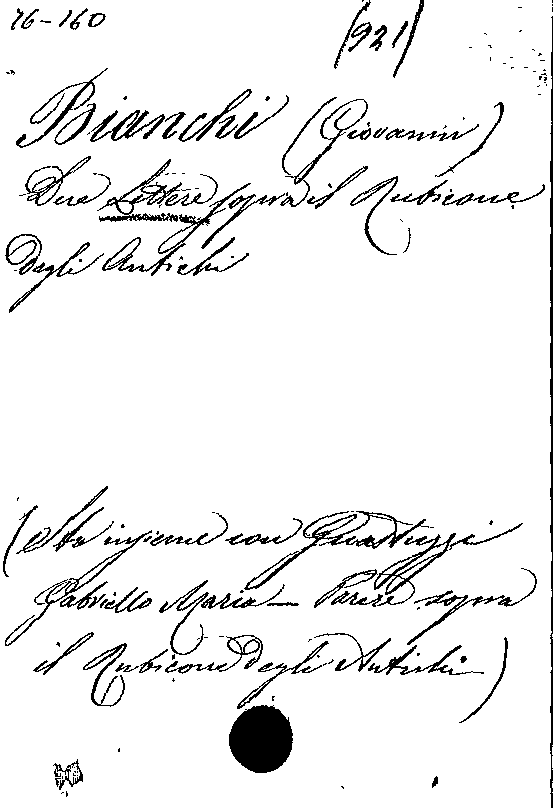 76-160
(921)
Bianchi (Giovanni)
Due Lettere sopra il Rubicone
degli Antichi
(Sta insieme con Guastuzzi
Gabriello Maria — Parere sopra
il Rubicone degli Antichi)